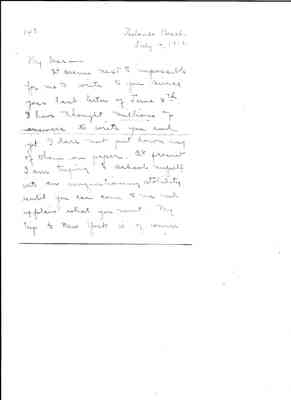 My dear —
It seems next to impossible
for me to write to you since
your last letter of June 8th
I have thought millions of
answers to write you and
yet I dare not put down any
of them on paper. At present
I am trying to school myself
into an unquestioning stolidity
until you can come to me and
explain what you meant. My
trip to New York is of course